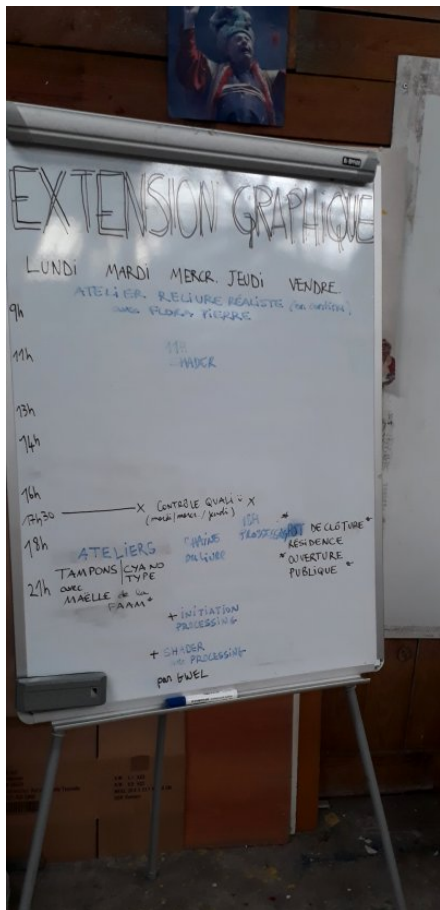 EXTENSION GRAPHIQUE
LUNDI MARDI MERCR. JEUDI VENDRE.
ATELIER RELIURE RÉALISTE
avec FLORA PIERRE
9h
11h
11H
SHADER
13h
14h
16h
17h30 X CONTRÔLE QUALI X
(mardi/mercr./jeudi)
18h
ATELIERS
TAMPONS / CYANO
TYPE
21h
avec
MAËLLE de la
FAAM*
CHAÎNE
DU LIVRE
18H
* DE CLÔTURE *
RÉSIDENCE
* OUVERTURE
PUBLIQUE *
+ INITIATION
PROCESSING
+ SHADER
PROCESSING
par GWEL